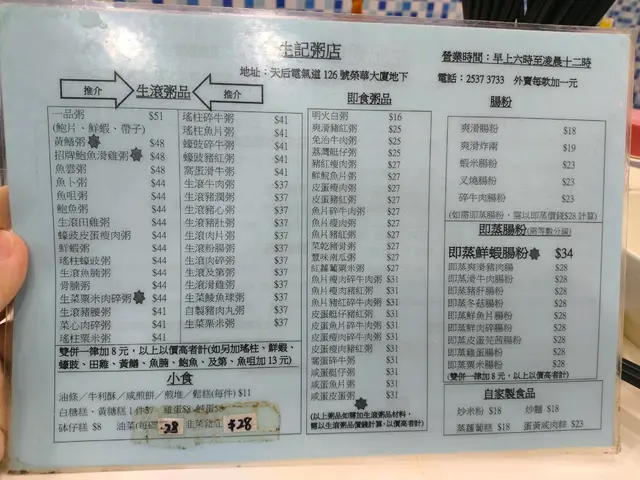 生記粥店
營業時間：早上六時至凌晨十二時
地址：天后電氣道 126 號榮華大廈地下
電話：2537 3733 外賣每款加一元
推介 生滾粥品 推介
一品粥 $51
(鮑片、鮮蝦、帶子)
黃鱔粥 $48
招牌鮑魚滑雞粥 $48
魚雲粥 $48
魚卜粥 $44
魚咀粥 $44
鮑魚粥 $44
生滾田雞粥 $44
蠔豉皮蛋瘦肉粥 $44
鮮蝦粥 $44
瑤柱蠔豉粥 $44
生滾魚腩粥 $44
骨腩粥 $44
生菜粟米肉碎粥 $44
生滾豬腰粥 $41
菜心肉碎粥 $41
瑤柱雞粥 $41
瑤柱碎牛粥 $41
瑤柱魚片粥 $41
蠔豉碎牛粥 $41
蠔豉豬紅粥 $41
窩蛋滑牛粥 $41
生滾牛肉粥 $37
生滾豬心粥 $37
生滾豬潤粥 $37
生滾豬肚粥 $37
生滾粉腸粥 $37
生滾肉碎粥 $37
生滾及第粥 $37
生滾滑雞粥 $37
生菜鯪魚球粥 $37
自製豬肉丸粥 $37
生菜粟米粥 $37
雙併一律加 8 元，以上以價高者計(如另加瑤柱、鮮蝦、
蠔豉、田雞、黃鱔、魚腩、鮑魚、及第、魚咀加 13 元)
小食
油條／牛利酥／咸煎餅／煎堆／鬆糕(每件) $11
白糖糕、黃糖糕 1 件
砵仔糕 $8
油菜
28
$28
即食粥品
明火白粥 $16
爽滑豬紅粥 $25
免治牛肉粥 $25
荔灣艇仔粥 $25
豬紅瘦肉粥 $27
鮮鯇魚片粥 $27
皮蛋瘦肉粥 $27
皮蛋豬紅粥 $27
魚片碎牛肉粥 $27
魚片瘦肉粥 $27
魚片豬紅粥 $27
菜乾豬骨粥 $27
豐味南瓜粥 $27
紅蘿蔔粟米粥 $27
魚片瘦肉碎牛肉粥 $31
魚片瘦肉豬紅粥 $31
魚片豬紅碎牛肉粥 $31
皮蛋艇仔豬紅粥 $31
皮蛋魚片瘦肉粥 $31
皮蛋瘦肉碎牛肉粥 $31
皮蛋瘦肉豬紅粥 $31
窩蛋碎牛粥 $31
咸蛋艇仔粥 $31
咸蛋魚片粥 $31
咸蛋皮蛋粥 $31
(以上粥品如需加生滾粥品材料，
需以生滾粥品價錢計算，以價高者計)
腸粉
爽滑腸粉 $18
爽滑炸兩 $19
蝦米腸粉 $23
叉燒腸粉 $23
碎牛肉腸粉 $23
(如需即蒸腸粉，需以即蒸價錢$28 計算)
即蒸腸粉(需等數分鐘)
即蒸鮮蝦腸粉 $34
即蒸爽滑豬肉腸 $28
即蒸滑牛肉腸粉 $28
即蒸豬肝腸粉 $28
即蒸冬菇腸粉 $28
即蒸鮮魚片腸粉 $28
即蒸鮮肉碎腸粉 $28
即蒸皮蛋芫茜腸粉 $28
即蒸雞蛋腸粉 $28
即蒸粟米腸粉 $28
(雙併一律加 8 元，以上以價高者計)
自家製食品
炒米粉 $18 炒麵 $18
蒸蘿蔔糕 $18 蛋黃咸肉粽 $23